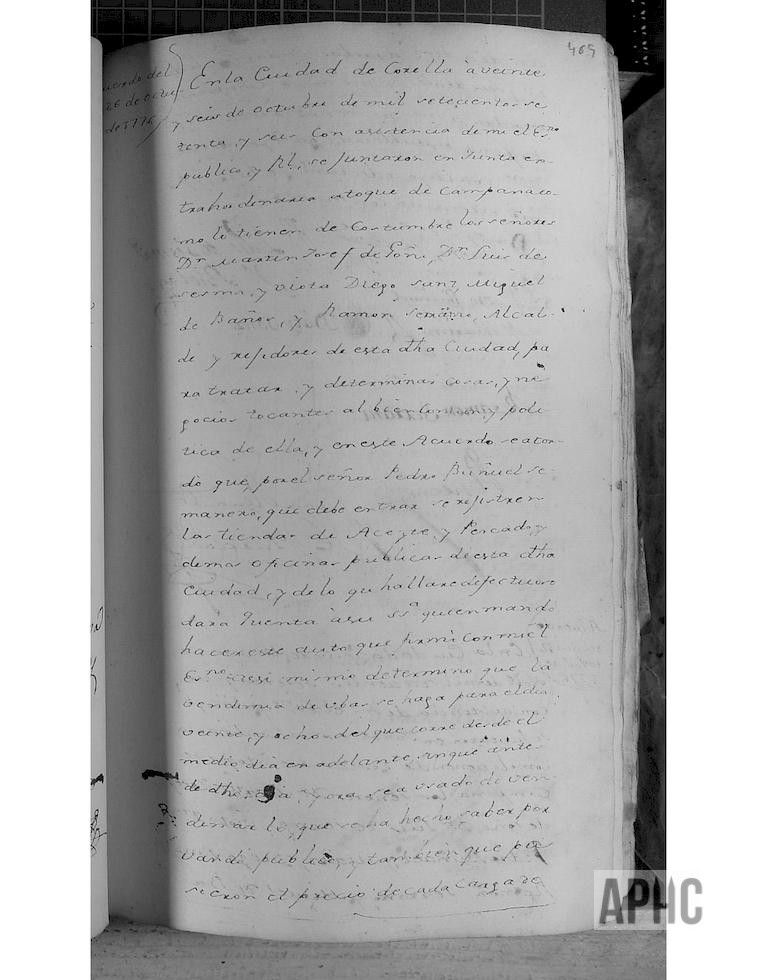 469
Acuerdo del
26 de octu
de 1776
En la Ciudad de Corella à veinte
y seis de octubre de mil setecientos se
tenta, y seis Con asistencia de mi el Es.no
publico, y Rl, se juntaron en Junta en
trahordinaria atoque de Campana co-
mo lo tienen de Costumbre los señores
Dn Martin Josef de Goñi, Dn Luis de
sesma, y Viota Diego sanz, Miguel
de Baños, y Ramon serrano, Alcal-
de y rexidores de esta dha Ciudad, pa
ra tratar, y determinar cosas, y ne
gocios tocantes al bien Comun, y poli
tica de ella, y en este Acuerdo se acor-
dò que, por el señor Pedro Buñuel se-
manero, que debe entrar se rejistren
las tiendas de Aceyte, y Pescado, y
demas oficinas publicas de esta dha
Ciudad, y de lo que hallare defectuoso
dara Quenta à su Ssa quien mandò
hacer este auto que firmò Con mi el
Es.no assi mismo determino que la
vendimia de vbas se haga para el dia
veinte, y ocho del que corre desde el
medio dia en adelante sin que antes
de dho dia, y ora sea vsado de ven-
dimar lo, que se ha hecho saber por
vando publico, y tambien que pu
sieron el precio de cada Carga de
APHC